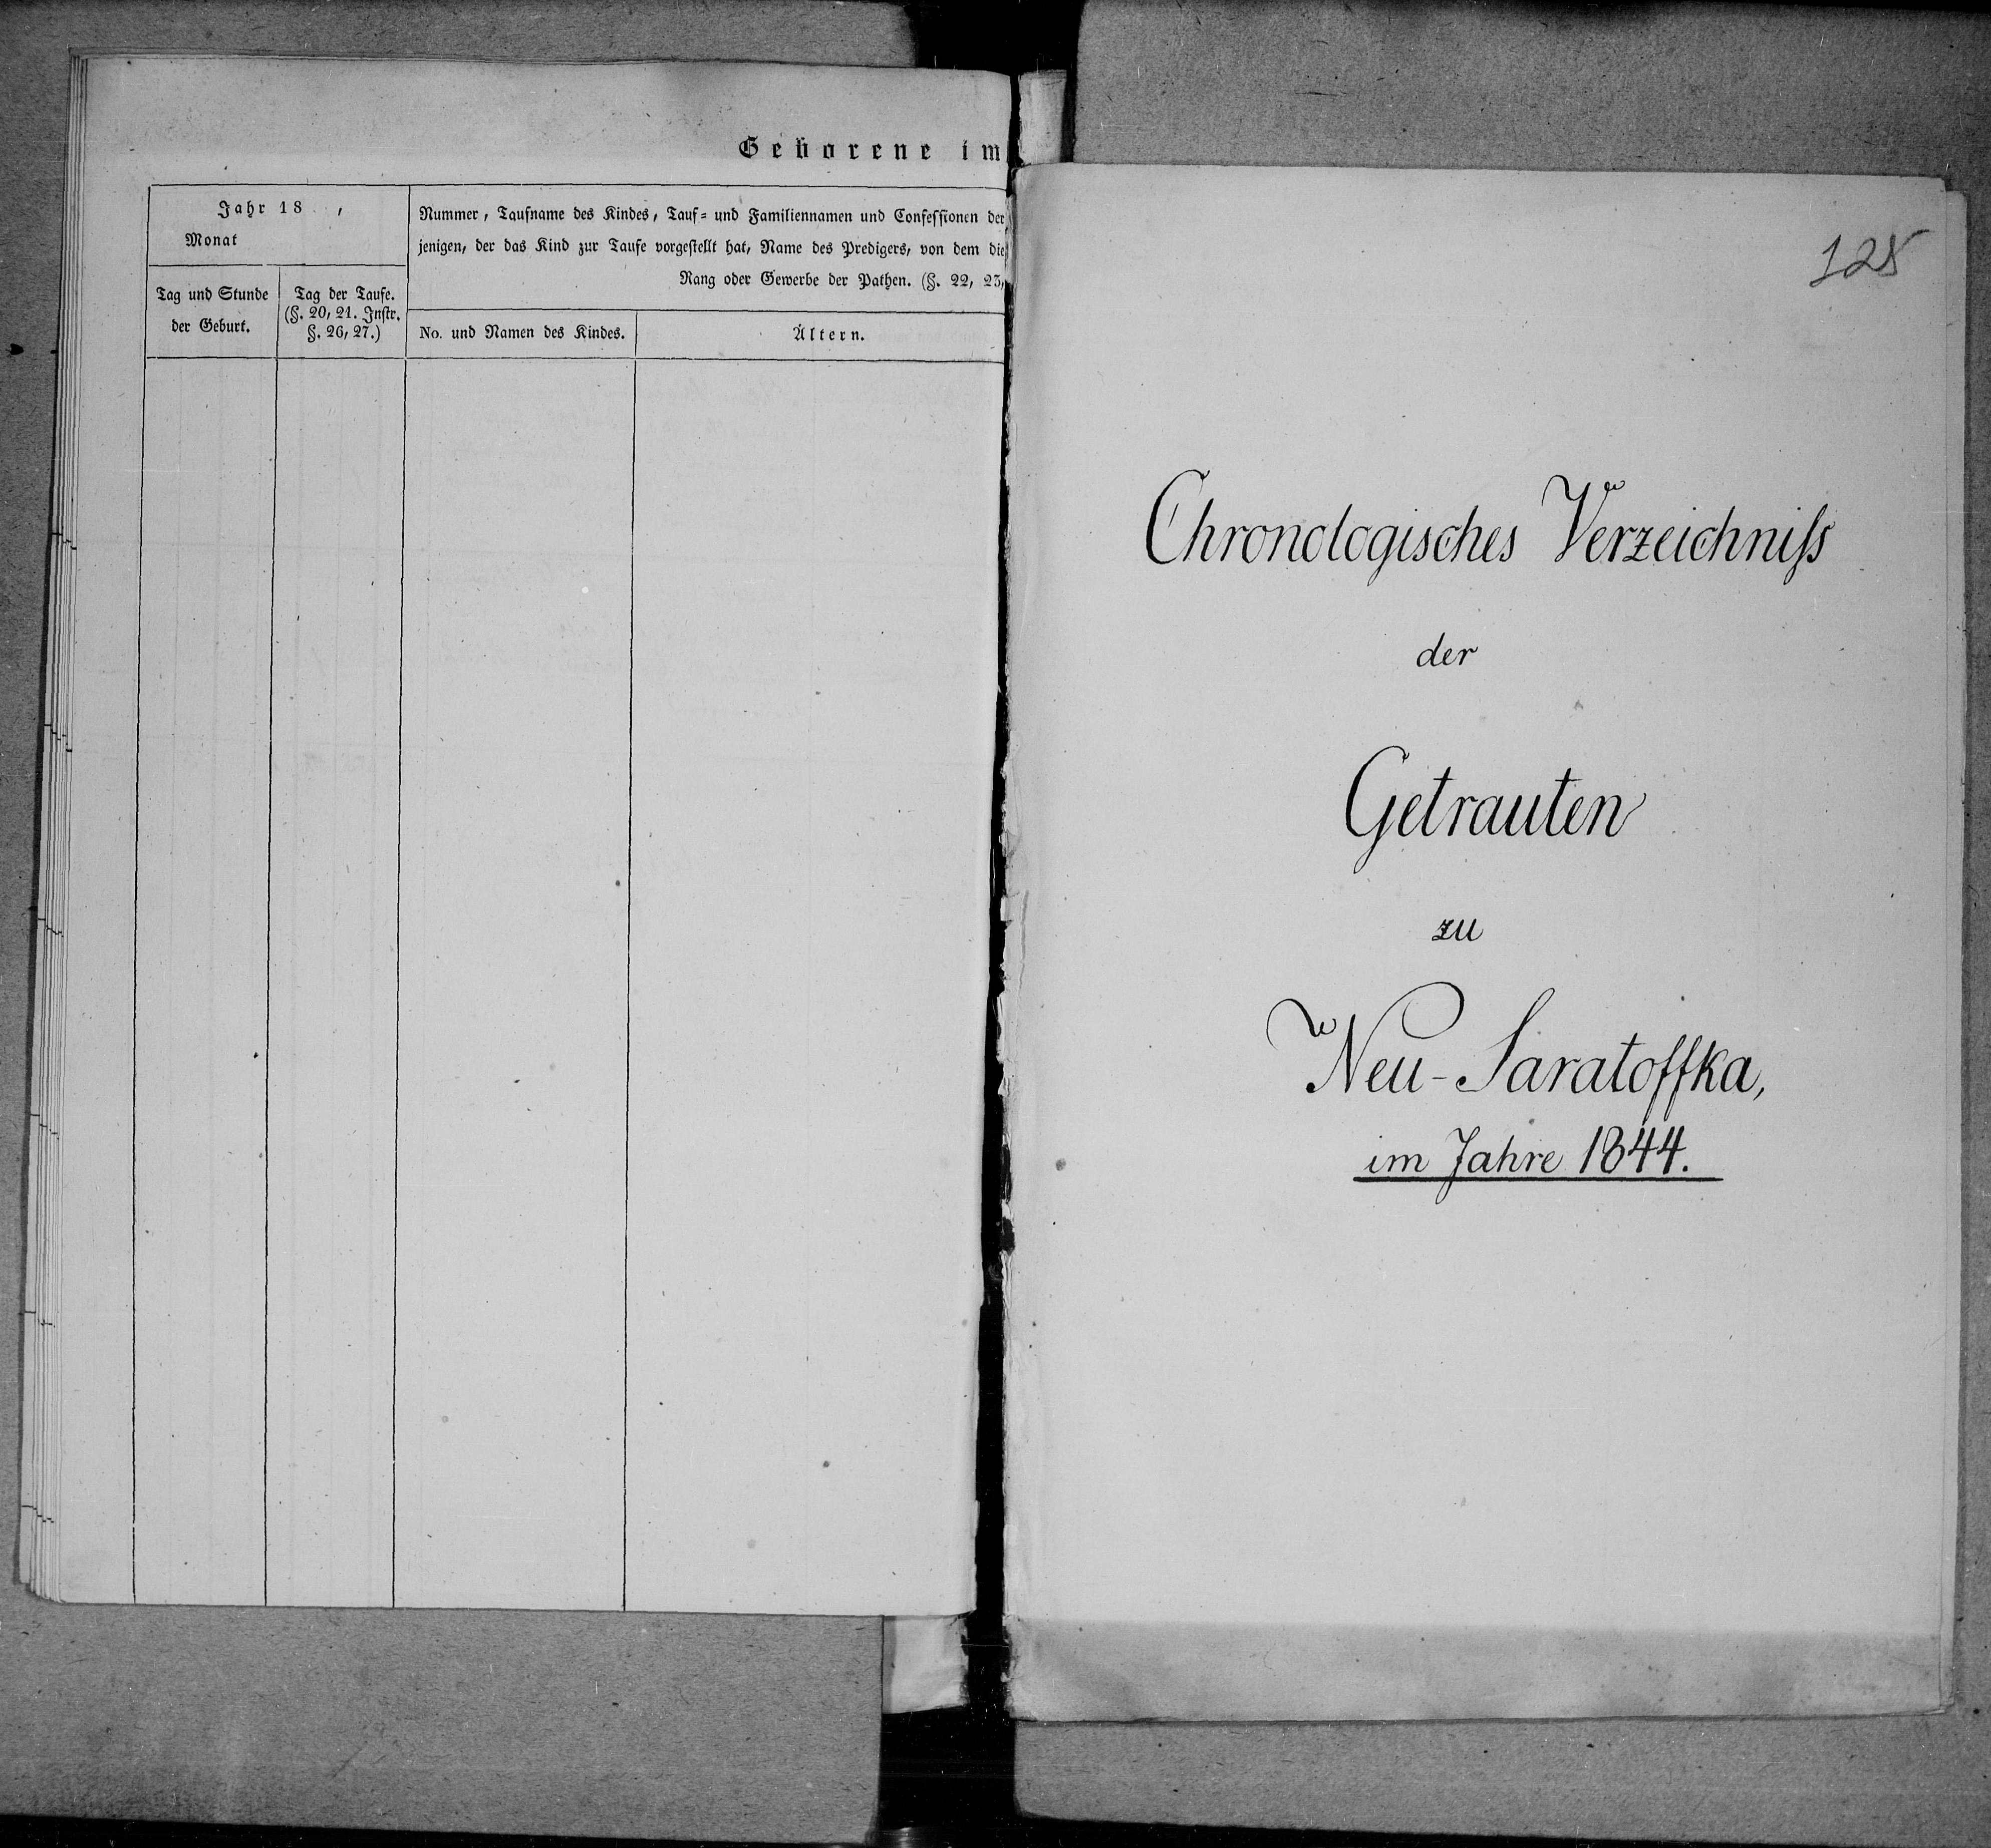 Geborene im
Jahr 18 ,
Monat
Nummer, Taufname des Kindes, Tauf= und Familiennamen und Confessionen der
jenigen, der das Kind zur Taufe vorgestellt hat, Name des Predigers, von dem die
Rang oder Gewerbe der Pathen. (§. 22, 23,
Tag und Stunde
der Geburt.
Tag der Taufe.
(§. 20, 21. Instr.
§. 26, 27.)
No. und Namen des Kindes.
Ältern.
125
Chronologisches Verzeichniſs
der
Getrauten
zu
Neu-Saratoffka,
im Jahre 1844.